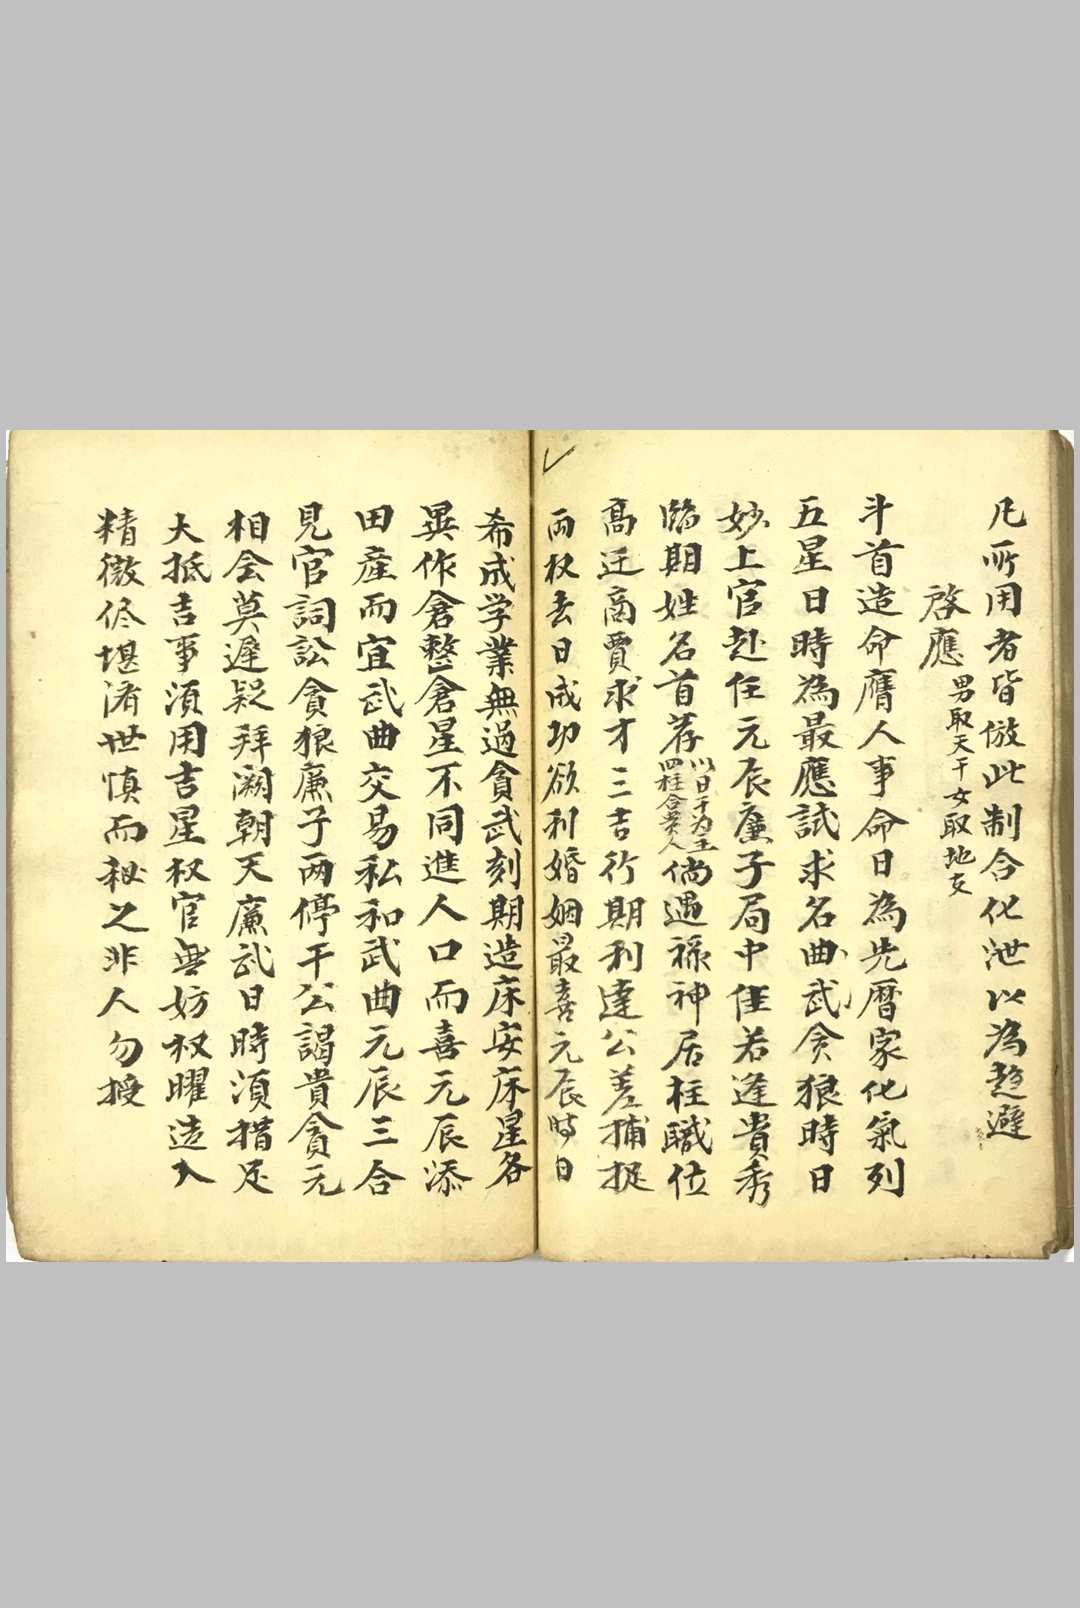 凡所用者皆倣此制合化泄以為趋避
啓應 男取天干女取地支
斗首造命膺人事命日為先曆家化氣列
五星日時為最應試求名曲武貪狼時日
妙上官赴任元辰廉子局中佳若逢貴秀
臨期姓名首荐 以日干为主四柱合貴人 倘遇祿神居柱職位
高迁商賈求才三吉行期利達公差捕捉
両杈去日成功欲利婚姻最喜元辰時日
希成学業無過貪武刻期造床安床星各
異作倉整倉星不同進人口而喜元辰添
田産而宜武曲交易私和武曲元辰三合
見官詞訟貪狼廉子両停干公謁貴貪元
相会莫遲疑拜闕朝天廉武日時須措足
大抵吉事須用吉星权官無妨杈曜造入
精微侭堪済世慎而秘之非人勿授